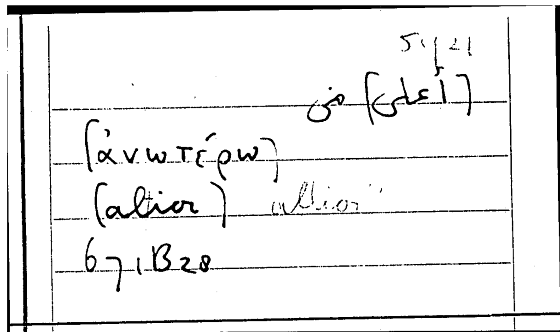 51,21
(ἀνωτέρω)
(altior) altior
671B28